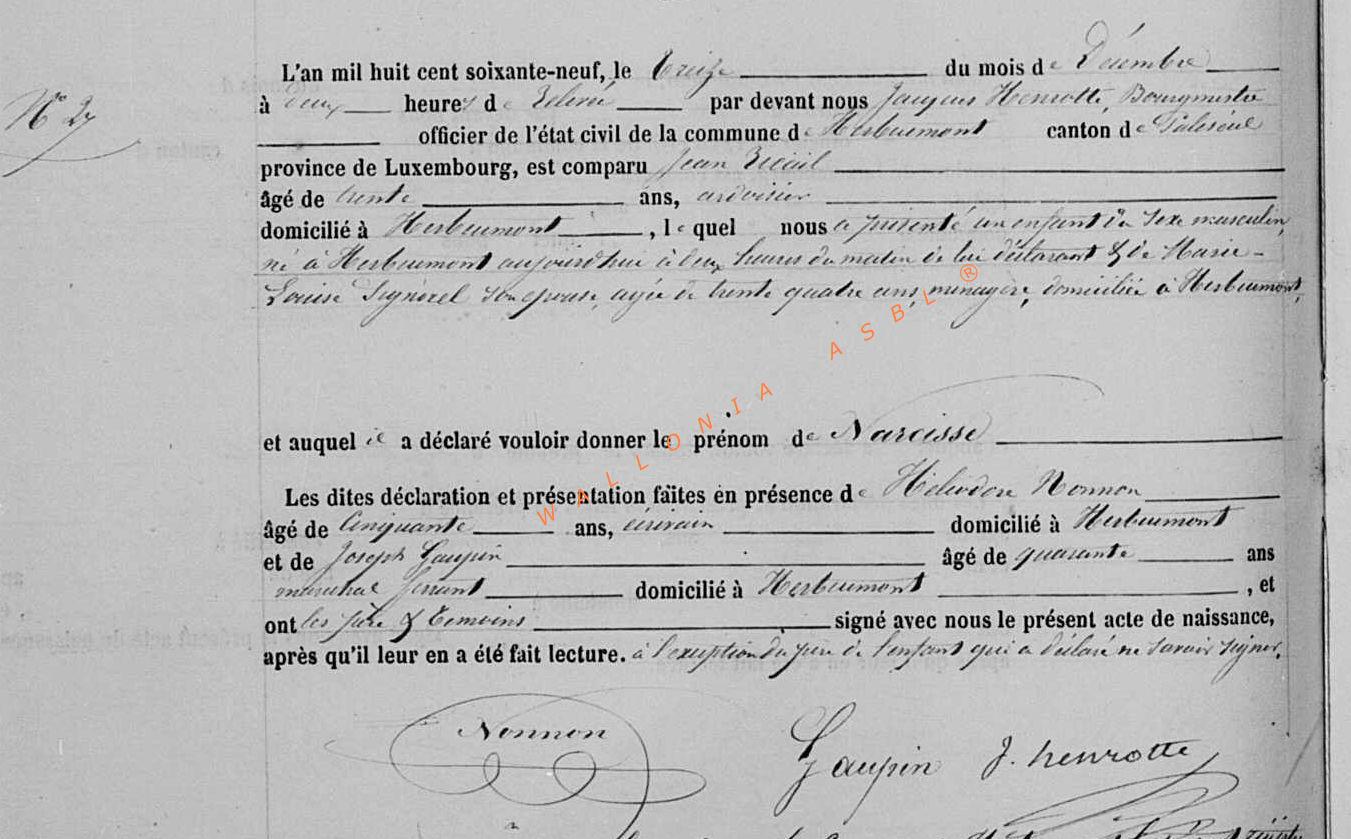 N° 27
L'an mil huit cent soixante-neuf, le treize du mois de Décembre
à deux heures de relevée par devant nous Jacques Henrotte, Bourgmestre
officier de l'état civil de la commune de Herbeumont canton de Paliseul
province de Luxembourg, est comparu Jean
âgé de trente ans, ardoisier
domicilié à Herbeumont, lequel nous a présenté un enfant du sexe masculin,
né à Herbeumont aujourd'hui à deux heures du matin de lui déclarant & de Marie-
Louise Signorel son épouse, agée de trente quatre ans, ménagère, domiciliée à Herbeumont,
et auquel il a déclaré vouloir donner le prénom de Narcisse
Les dites déclaration et présentation faites en présence de Héliodore Nonnon
âgé de Cinquante ans, écrivain domicilié à Herbeumont
et de Joseph Gaupin âgé de quarante ans
maréchal ferrant domicilié à Herbeumont, et
ont les père & témoins signé avec nous le présent acte de naissance,
après qu'il leur en a été fait lecture. à l'exception du père de l'enfant qui a déclaré ne savoir signer.
Nonnon Gaupin J. henrotte
WALLONIA ASBL ®